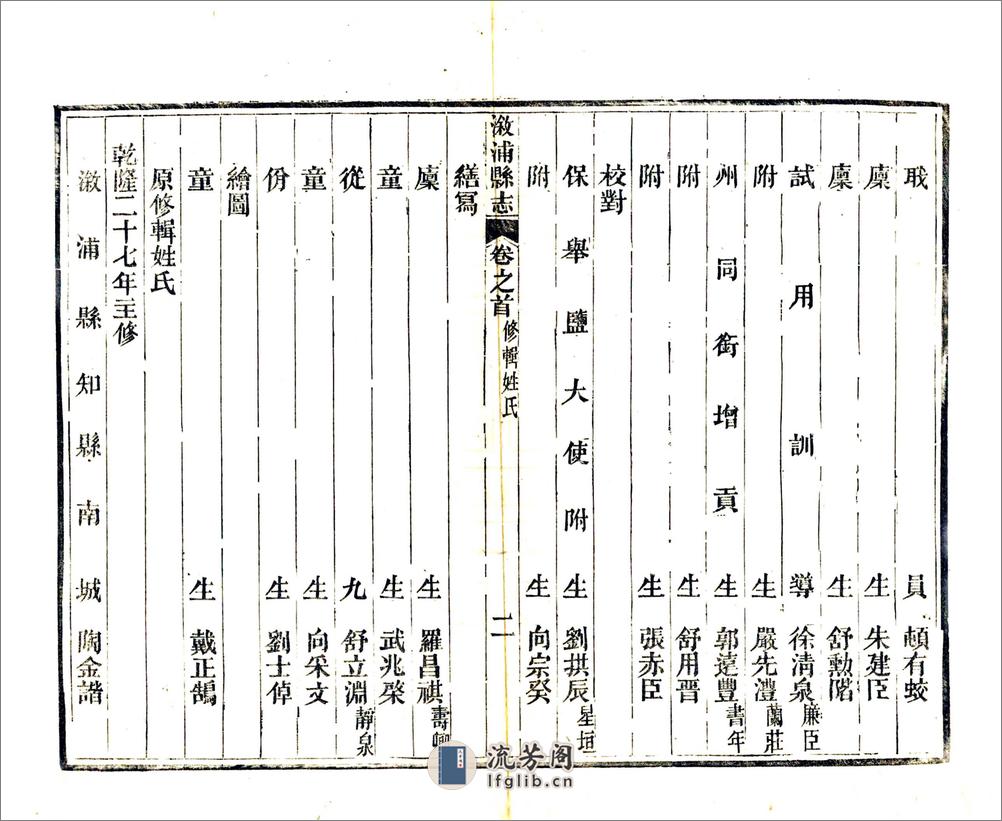 職員頼有蛟
廩生朱建臣
廩生舒勳階
試用訓導徐清泉廉臣
附生嚴先澧蘭莊
州同銜增貢生郭遠豐書年
附生舒用晋
附生張赤臣
校對
保舉鹽大使附生劉拱辰星垣
附生向宗癸
漵浦縣志 卷之首 修輯姓氏 二
繕寫
廩生羅昌祺壽卿
童生武兆棨
從九舒立淵靜泉
童生向采文
份生劉士倬
繪圖
童生戴正鵠
原修輯姓氏
乾隆二十七年主修
漵浦縣知縣南城陶金諧
流芳阁
lfglib.cn